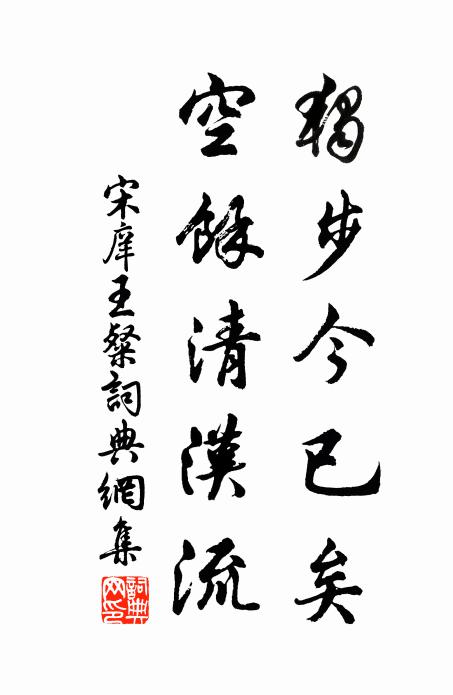 獨步今已矣
空餘清漢流
宋庠王粲詞典網集
詞典網印